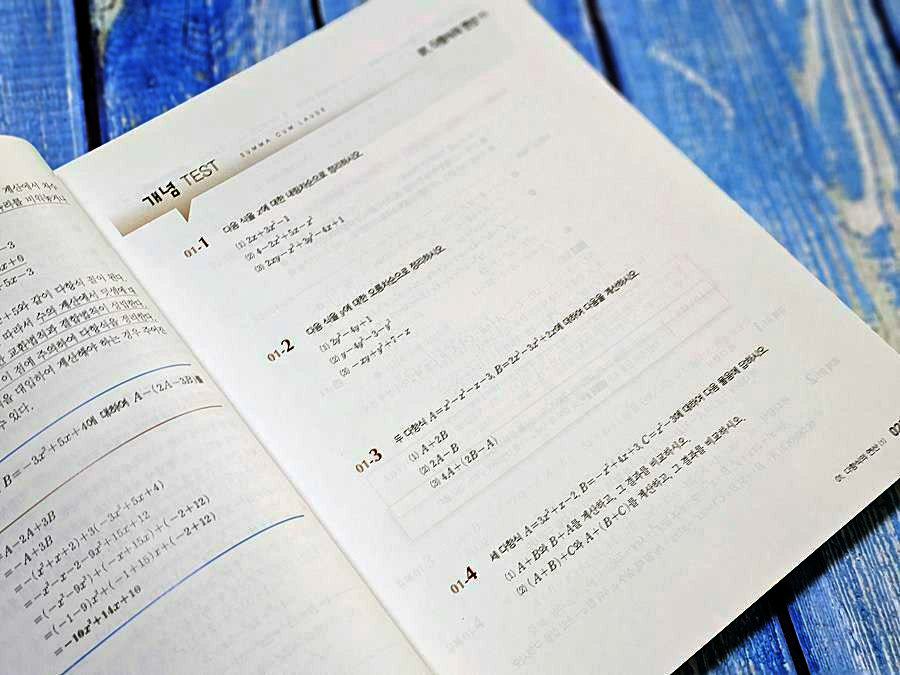 계산에서 자릿
-3
x+6
-5x-3
+5와 같이 다항식 끼리 뺀다.
따라서 수의 계산에서 덧셈에 대한
교환법칙과 결합법칙이 성립한다.
이 점에 주의하여 다항식을 정리한다.
을 대입하여 계산해야 하는 경우 주어진
수 있다.
B=-3x²+5x+4에 대하여 A-(2A-3B)를
=A-2A+3B
=-A+3B
=-(x²+x+2)+3(-3x²+5x+4)
=-x²-x-2-9x²+15x+12
=(-x²-9x²)+(-x+15x)+(-2+12)
=(-1-9)x²+(-1+15)x+(-2+12)
=-10x²+14x+10
01. 다항식의 연산 (1)
개념 TEST SUMMA CUM LAUDE
01-1 다음 식을 x에 대한 내림차순으로 정리하시오.
(1) 2x+3x²-1
(2) 4-2x²+5x-x³
(3) 2xy-x²+3y²-4x+1
01-2 다음 식을 y에 대한 오름차순으로 정리하시오.
(1) 2y²-4y-1
(2) y-4y²-3-y³
(3) -xy+y²+1-x
01-3 두 다항식 A=x³-x²-x-3, B=2x³-3x²+2x에 대하여 다음을 계산하시오.
(1) A+2B
(2) 2A-B
(3) 4A+(2B-A)
01-4 세 다항식 A=3x²+x-2, B=-x²+4x-3, C=x²-3에 대하여 다음 물음에 답하시오.
(1) A+B와 B+A를 계산하고, 그 결과를 비교하시오.
(2) (A+B)+C와 A+(B+C)를 계산하고, 그 결과를 비교하시오.
01. 다항식의 연산 (1)